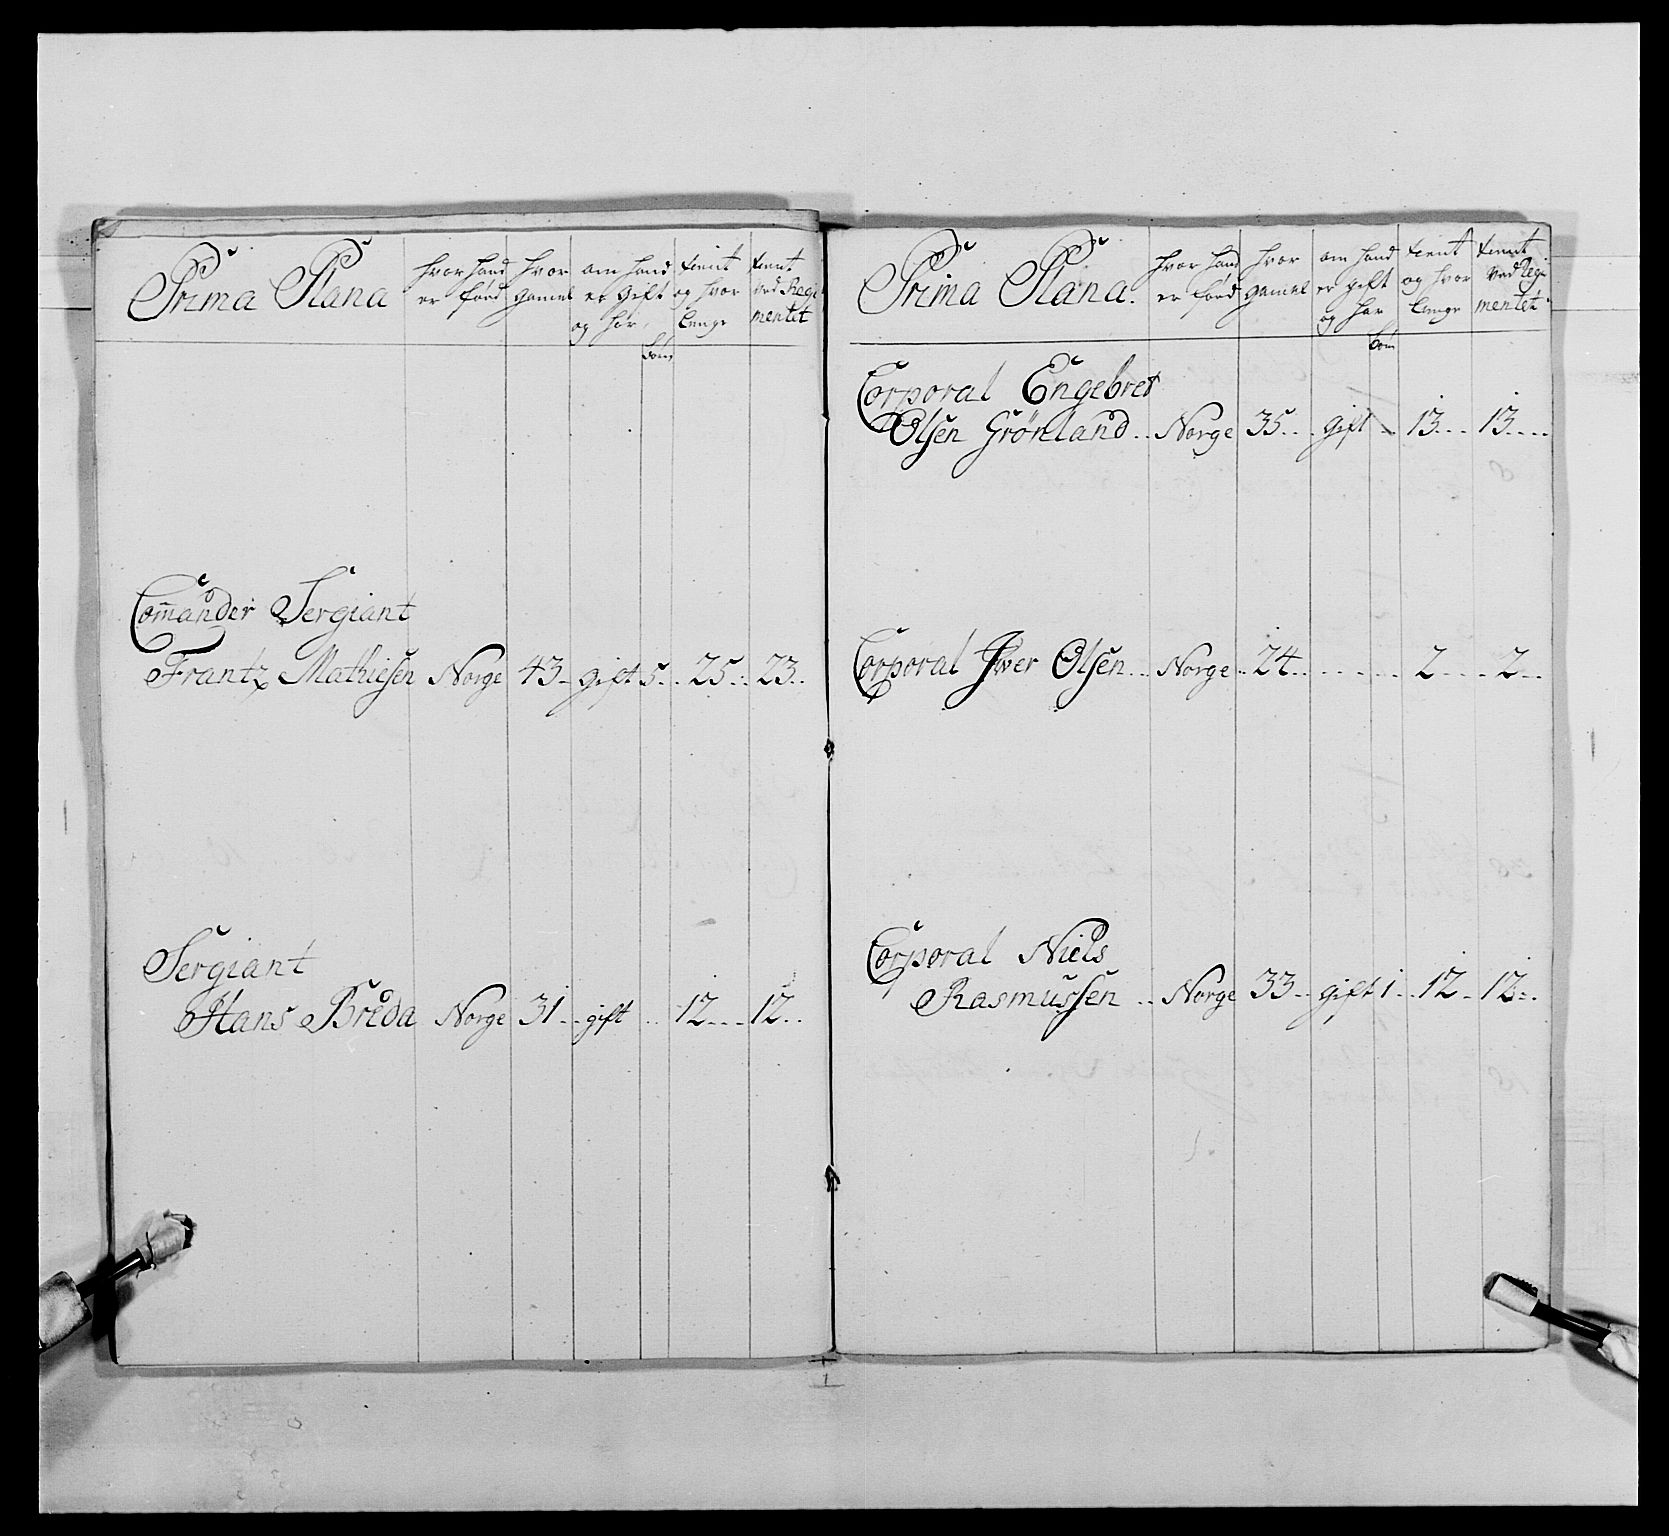 Prima Plana
hvor hand er föed
hvor gamel
om hand er gift og har börn
tient og hvor lenge
tient ved Regimentet
Comander Sergiant
Frantz Mathiesen Norge 43 gift 5 25 23
Sergiant
Hans Breda Norge 31 gift 12 12
Prima Plana
hvor hand er föed
hvor gamel
om hand er gift og har börn
tient og hvor lenge
tient ved Regimentet
Corporal Engebret
Olsen Grönland Norge 35 gift 13 13
Corporal Iwer Olsen Norge 24 2 2
Corporal Niels
Rasmussen Norge 33 gift 1 12 12